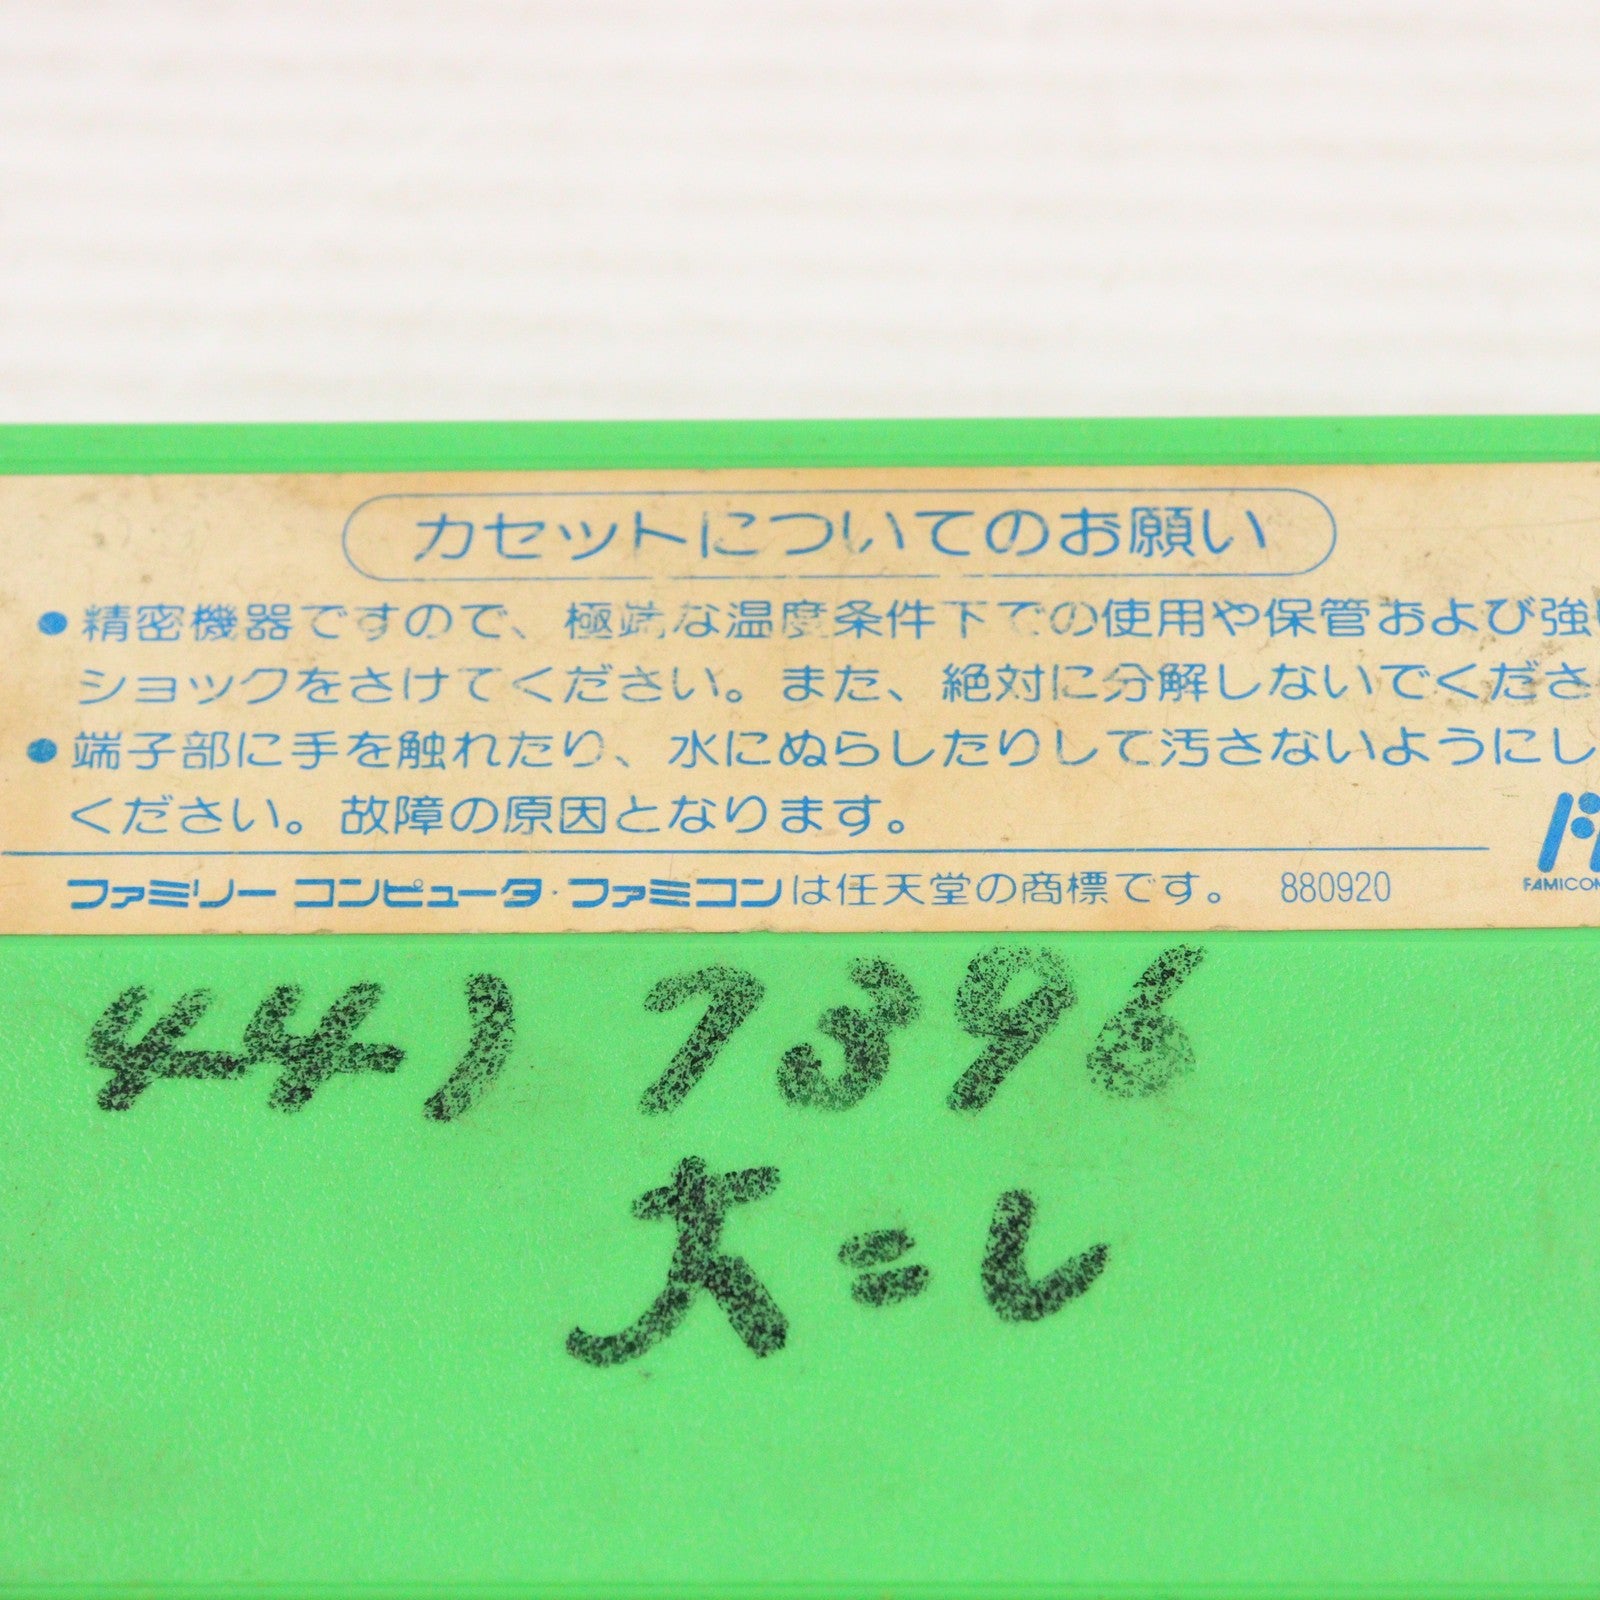 カセットについてのお願い
●精密機器ですので、極端な温度条件下での使用や保管および強い
ショックをさけてください。また、絶対に分解しないでくださ
●端子部に手を触れたり、水にぬらしたりして汚さないようにし
ください。故障の原因となります。
ファミリー コンピュータ・ファミコンは任天堂の商標です。 880920
FAMICOM
441 7396
大=し